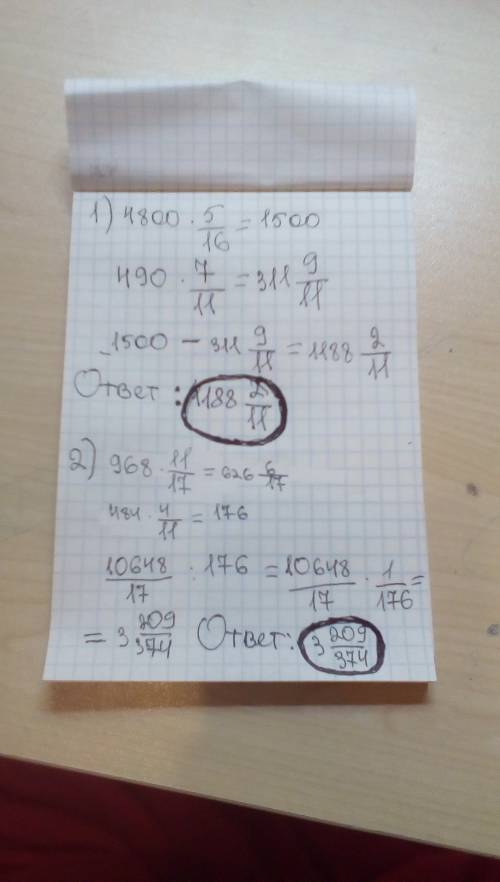 1) 4800 · 5/16 = 1500
490 · 7/11 = 311 9/11
1500 - 311 9/11 = 1188 2/11
Ответ: 1188 2/11
2) 968 · 11/17 = 626 6/17
484 · 4/11 = 176
10648/17 : 176 = 10648/17 · 1/176 =
= 3 209/374 Ответ: 3 209/374